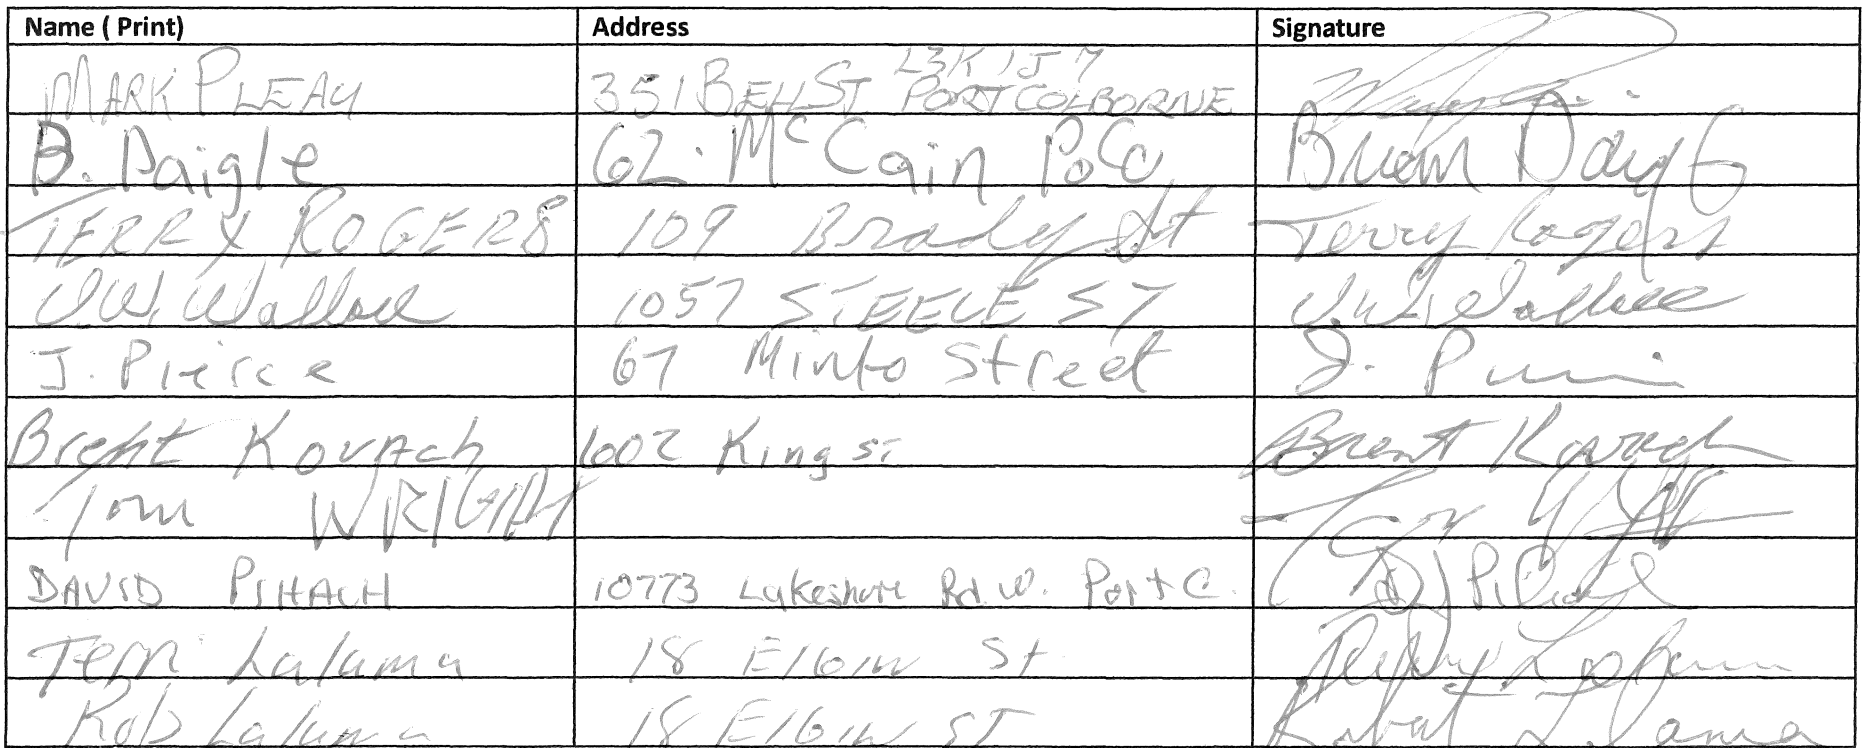 Name ( Print) Address Signature
L3K 1J7
MARK PLEAU 351 BELL ST PORT COLBORNE
B. Daigle 62 McCain PoCo Brian
TERRY ROGERS 109 Brady St Terry Rogers
D.W. Wallace 1057 STEELE ST D.W. Wallace
J. Pierce 67 Minto Street J.
Brent KovAch 1002 King St Brent Kovach
Tom WRIGHT
DAVID 10773 Lakeshore Rd. W. Port C.
Terri Laluma 18 Elgin St
Rob Laluma 18 Elgin ST Robert